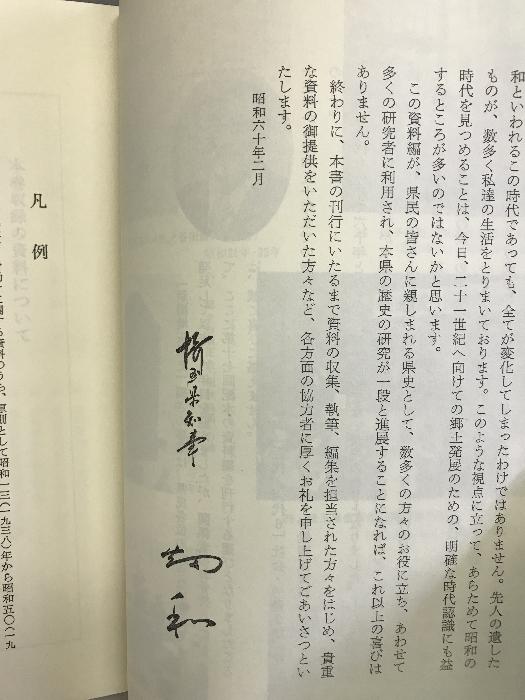 和といわれるこの時代であっても、全てが変化してしまったわけではありません。先人の遺した
ものが、数多く私達の生活をとりまいております。このような視点に立って、あらためて昭和の
時代を見つめることは、今日、二十一世紀へ向けての郷土発展のための、明確な時代認識にも益
するところが多いのではないかと思います。
この資料編が、県民の皆さんに親しまれる県史として、数多くの方々のお役に立ち、あわせて
多くの研究者に利用され、本県の歴史の研究が一段と進展することになれば、これ以上の喜びは
ありません。
終わりに、本書の刊行にいたるまで資料の収集、執筆、編集を担当された方々をはじめ、貴重
な資料の御提供をいただいた方々など、各方面の協力者に厚くお礼を申し上げてごあいさつとい
たします。
昭和六十年二月
埼玉県知事
和
凡例
資料のうち、原則として昭和一三(一九三八)年から昭和五〇(一九